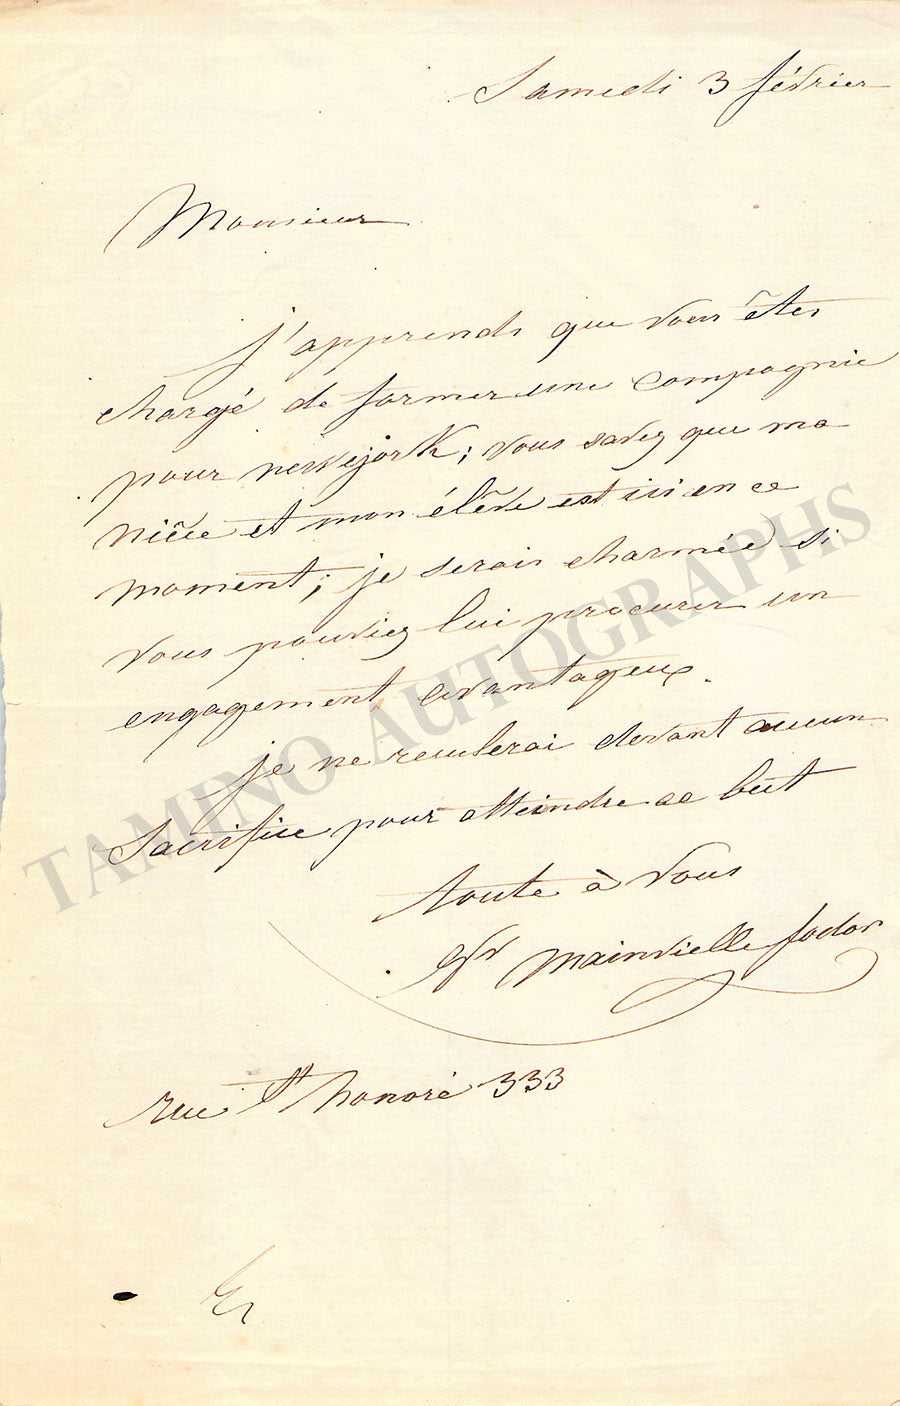 Samedi 3 février
Monsieur
j'apprends que vous êtes
chargé de former une compagnie
pour newejork; vous savez que ma
nièce et mon élêve est ici en ce
moment; je serais charmée si
vous pouviez lui procurer un
engagement avantageux.
je ne reculerai devant aucun
Sacrifice pour atteindre ce but
toute à vous
Mainvielle fodor
rue St honoré 333
TAMINO AUTOGRAPHS